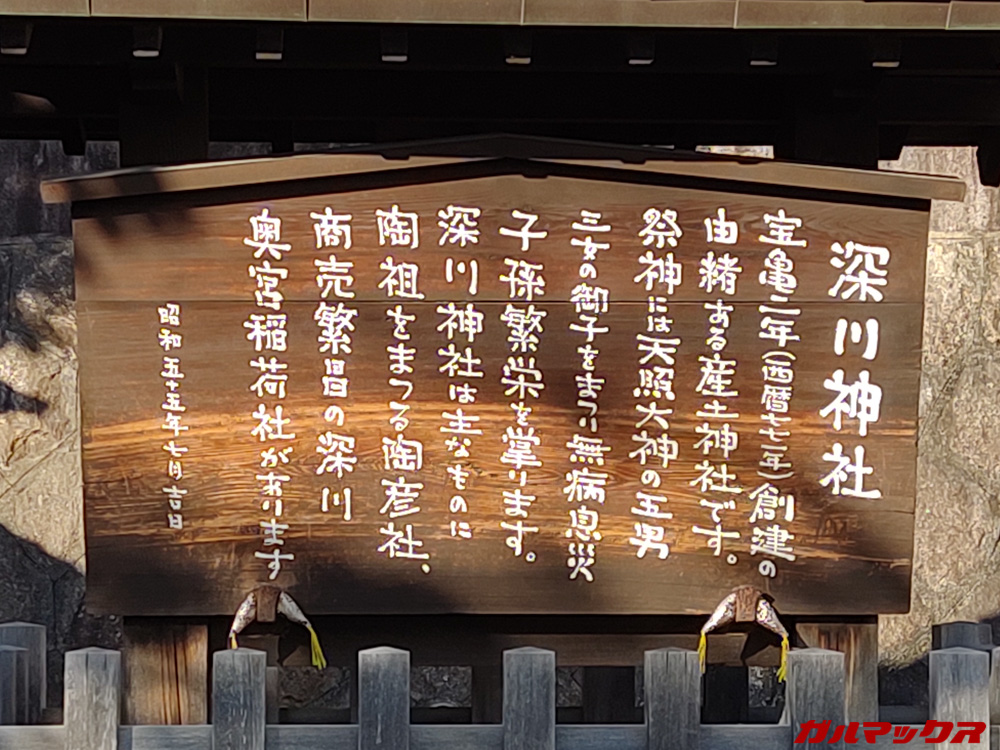 深川神社
宝亀二年(西暦七七一年)創建の
由緒ある産土神社です。
祭神には天照大神の五男
三女の御子をまつり無病息災
子孫繁栄を掌ります。
深川神社は主なものに
陶祖をまつる陶彦社、
商売繁昌の深川
奥宮稲荷社があります
昭和五十五年七月吉日
ガルマックス